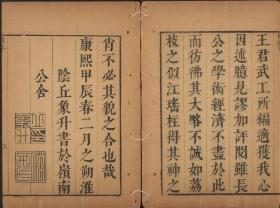 王君武工所編適獲我心
因述臆見謬加評閱雖長
公之學術經濟不盡於此
而彷彿其大略不誠如荔
枝之似江瑤柱得其神之
肖不必其貌之合也哉
康熙甲辰春二月之朔淮
陰丘象升書於嶺南
公舍